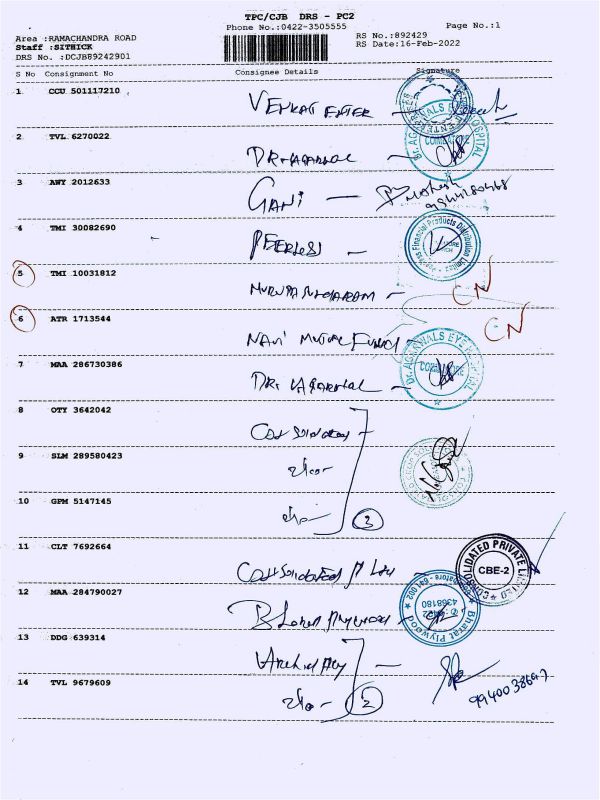 TPC/CJB DRS - PC2
Phone No.:0422-3505555
Page No.:1
Area :RAMACHANDRA ROAD
RS No.:892429
Staff :SITHICK
RS Date:16-Feb-2022
DRS No. :DCJB89242901
S No Consignment No Consignee Details Signature
1 CCU 501117210 VENKAT ENTER
2 TVL 6270022 DR AGARWAL
3 AWY 2012633 GANI — Mahesh
4 TMI 30082690 PEERLESS
5 TMI 10031812 CN
6 ATR 1713544 NAVI MUTUAL FUND CN
7 MAA 286730386 DR AGARWAL
8 OTY 3642042
9 SLM 289580423
10 GPM 5147145 3
11 CLT 7692664 Consolidated P Ltd
CONSOLIDATED PRIVATE LIMITED
CBE-2
12 MAA 284790027 Bharat Plywood
Bharat Plywood
4368180
13 DDG 639314
14 TVL 9679609 2
Dr. AGARWALS EYE HOSPITAL
COIMBATORE
Peerless Financial Products Distribution Limited
Dr. AGARWALS EYE HOSPITAL
COIMBATORE